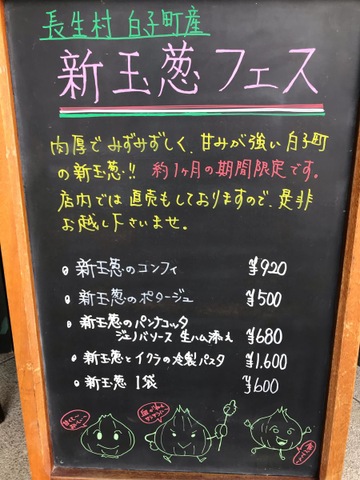 長生村 白子町産
新玉葱フェス
肉厚でみずみずしく、甘みが強い白子町
の新玉葱!! 約1ヶ月の期間限定です。
店内では直売もしておりますので、是非
お越し下さいませ。
・新玉葱のコンフィ ¥920
・新玉葱のポタージュ ¥500
・新玉葱のパンナコッタ
ジェノバソース 生ハム添え ¥680
・新玉葱とイクラの冷製パスタ ¥1.600
・新玉葱 1袋 ¥600